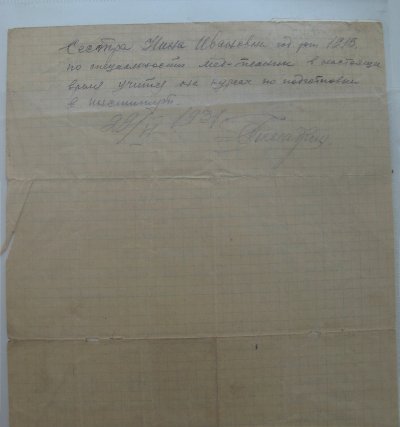 Сестра Нина Ивановна год рож 1915.
по специальности мед-техник в настоящи
время учится на курсах по подготовке
в институт.
29/VI-1938г.